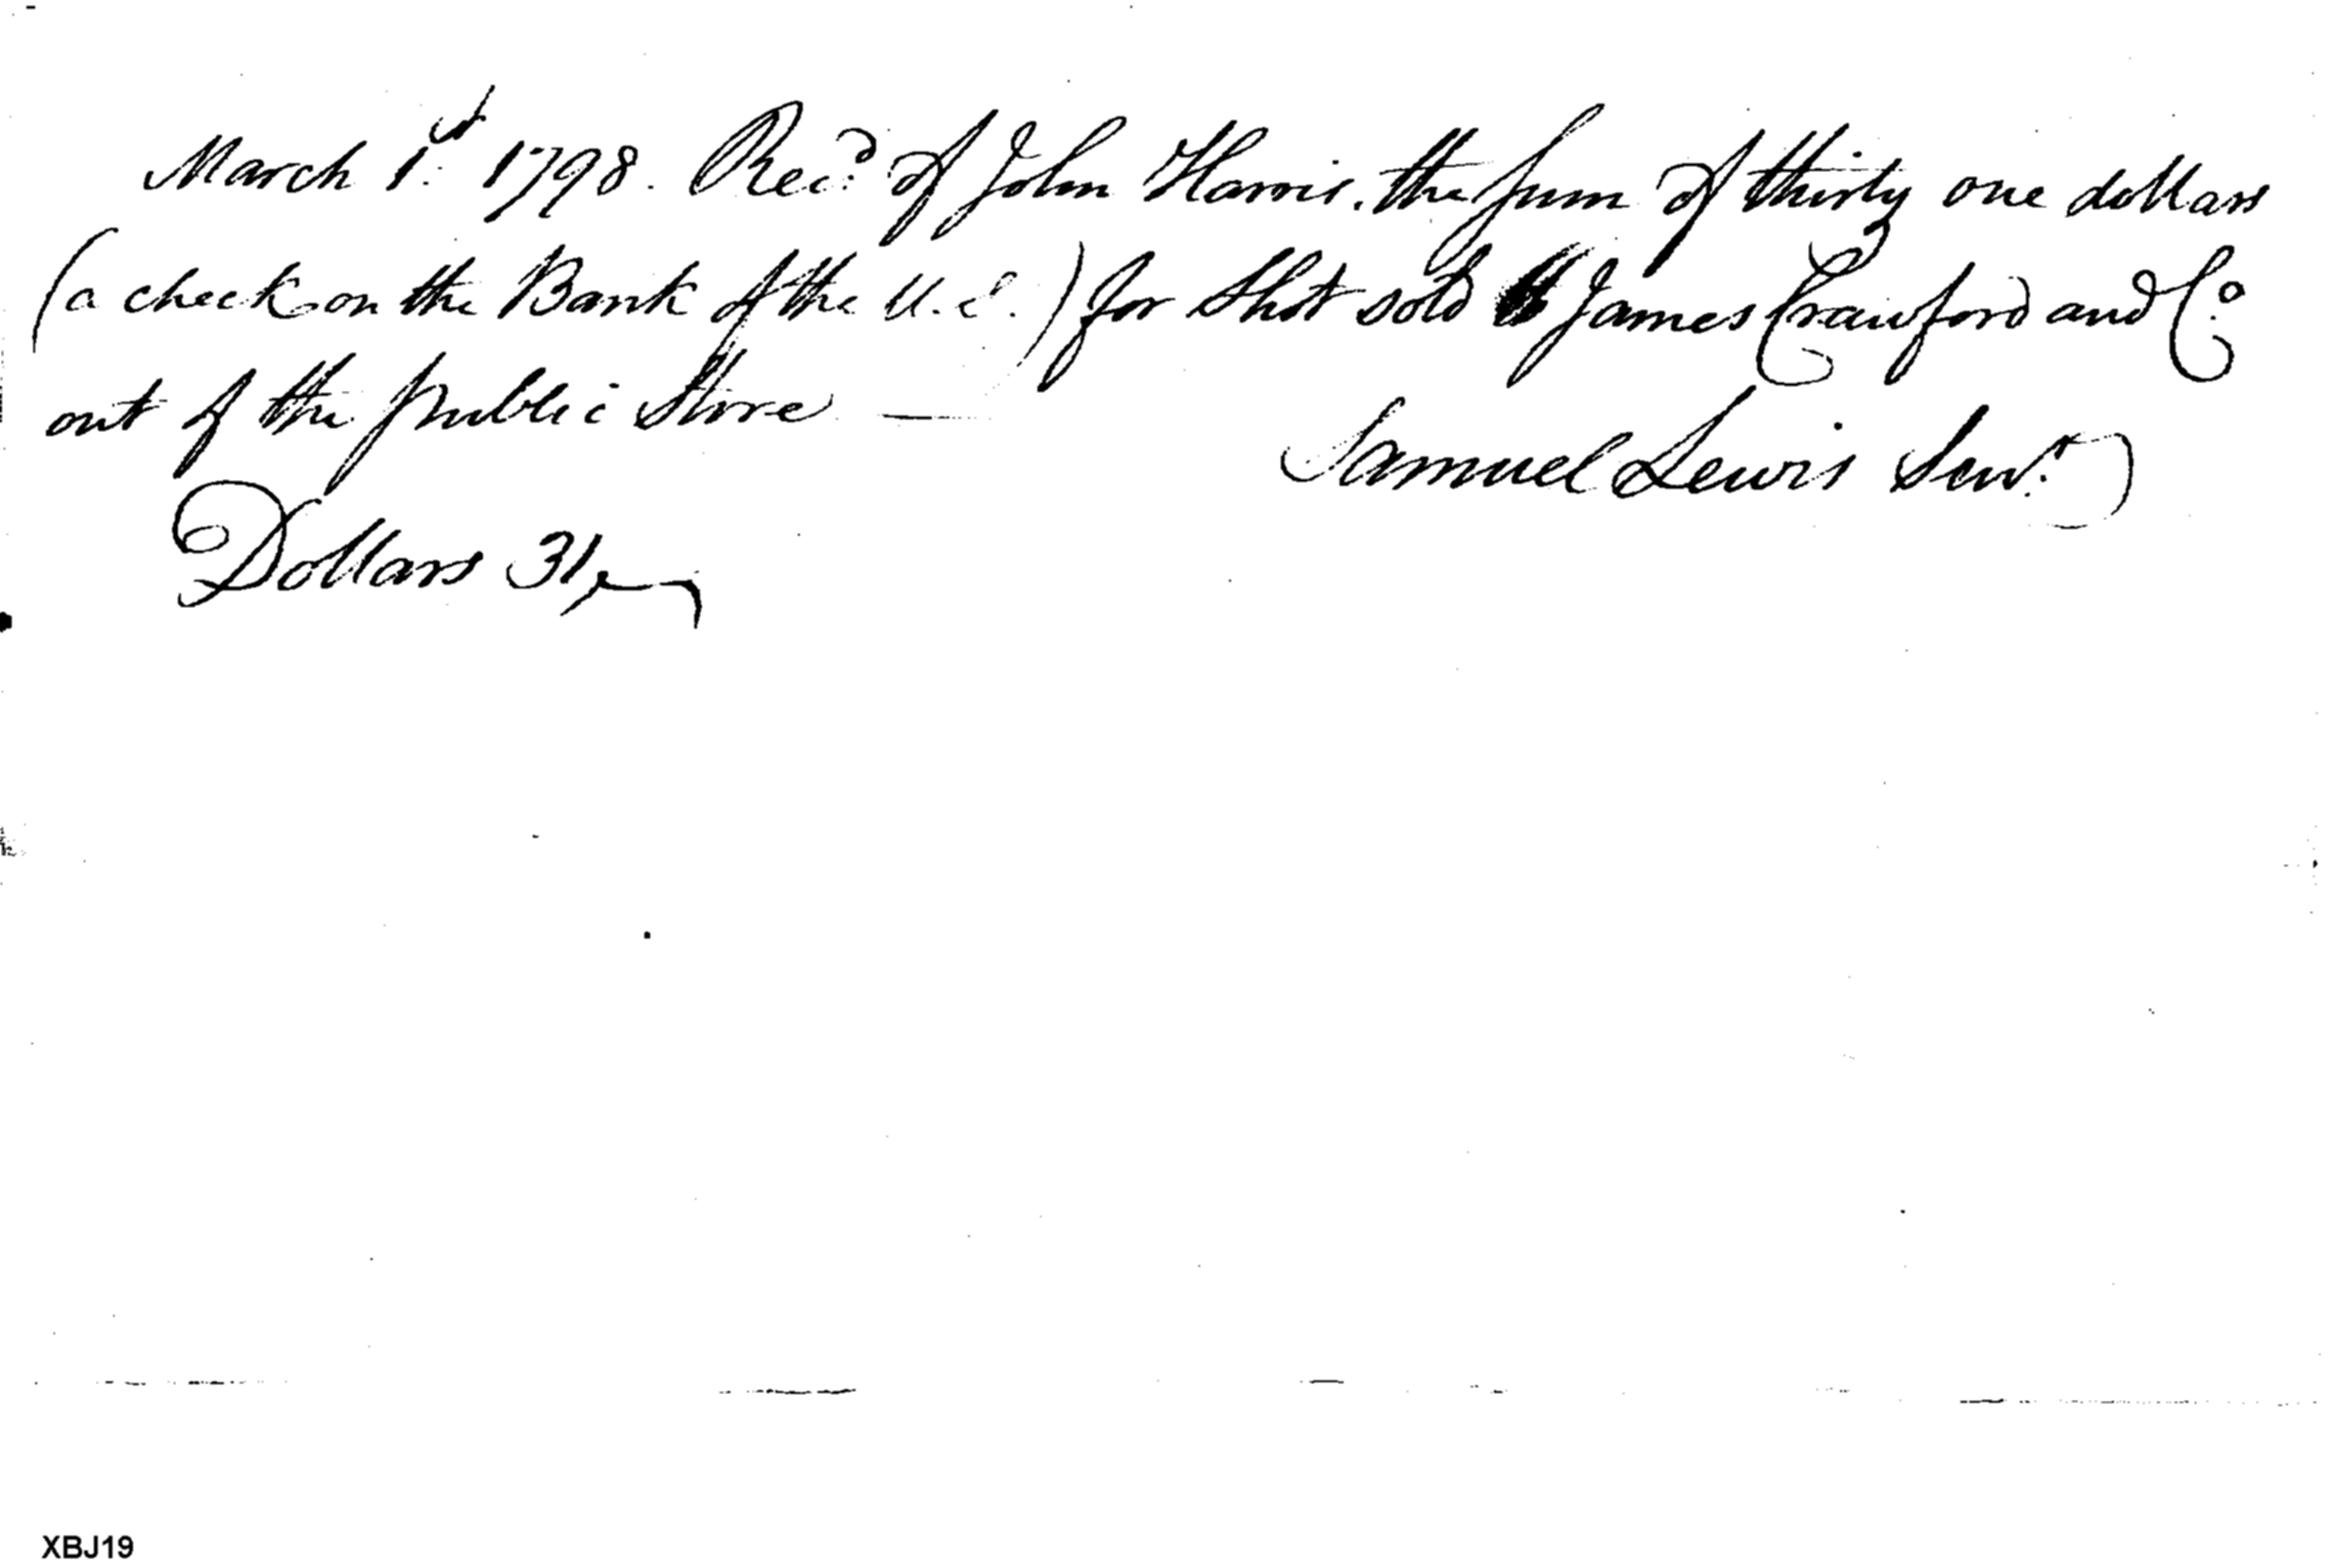 March 1st 1798. Recd. of John Harris, the sum of thirty one dollars
(a check on the Bank of the U.S.) for Shot sold James Crawford and Co.
out of the public Store —
Samuel Lewis Senr.
Dollars 31
XBJ19